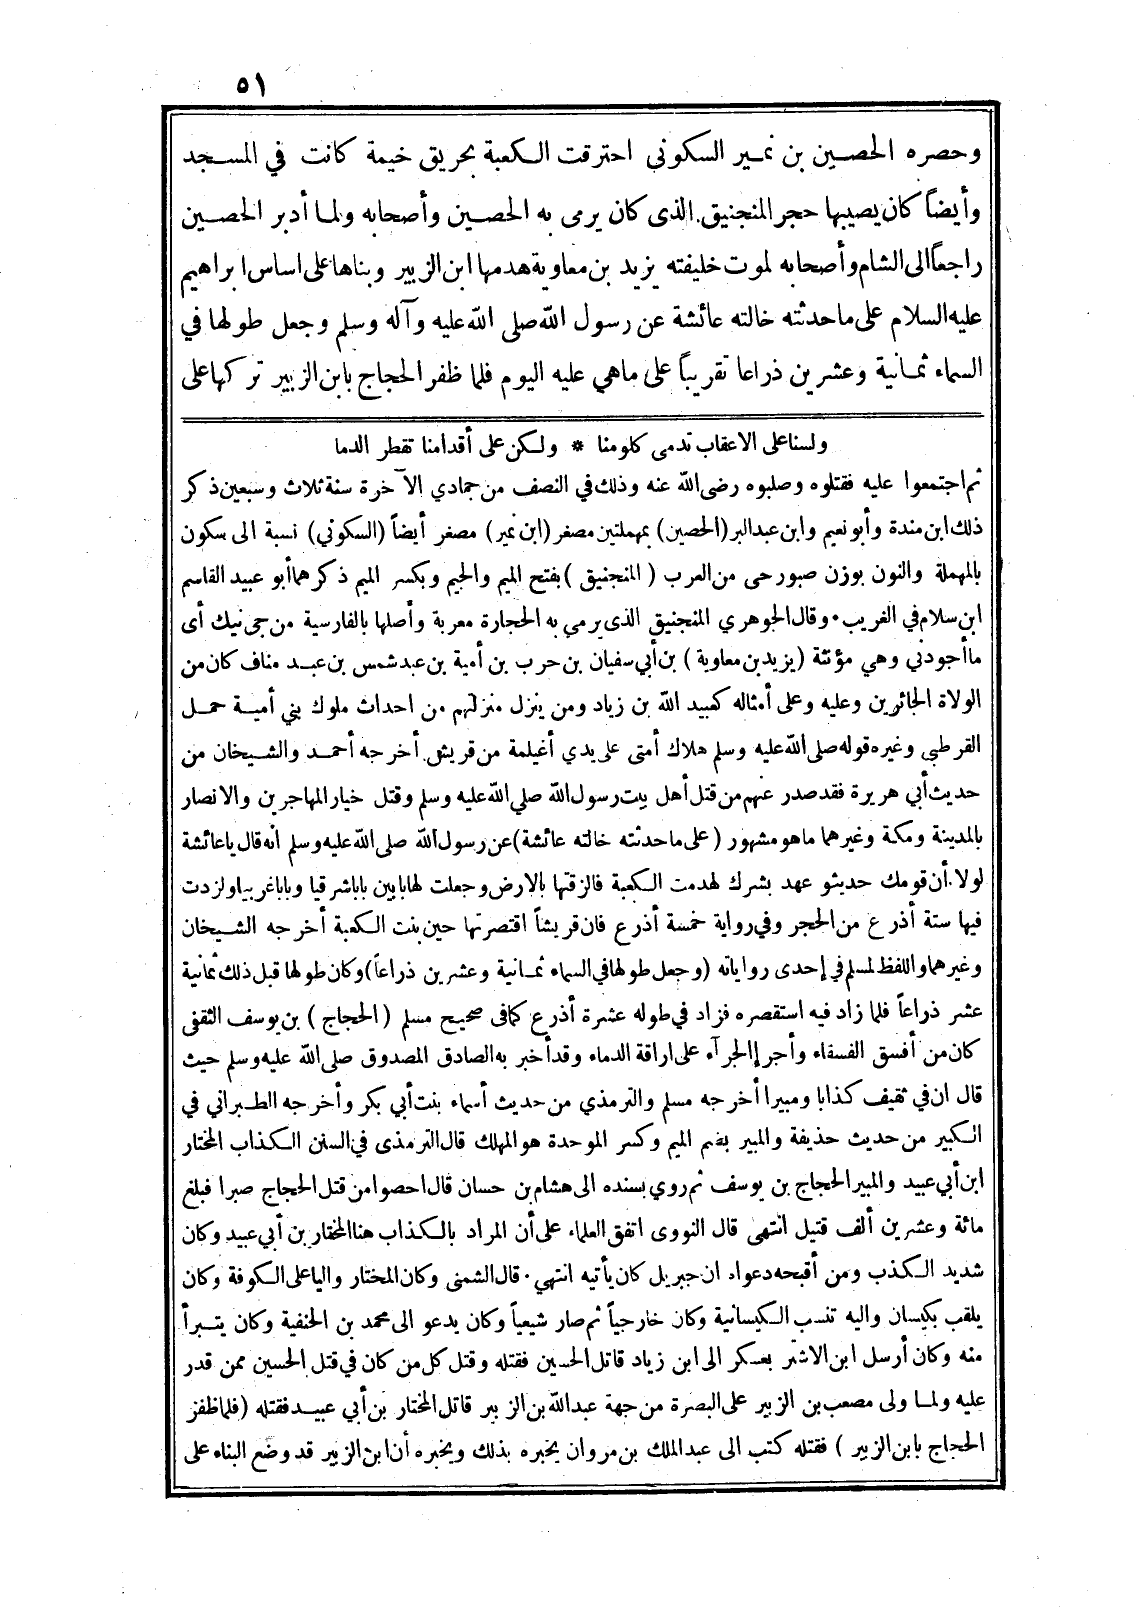 ٥١
وحصره الحصين بن نمير السكوني احترقت الكعبة بحريق خيمة كانت في المسجد
وأيضاً كان يصيبها حجر المنجنيق الذى كان يرمى به الحصين وأصحابه ولما أدبر الحصين
راجعاً الى الشام وأصحابه لموت خليفته يزيد بن معاوية هدمها ابن الزبير وبناها على اساس ابراهيم
عليه السلام على ما حدثته خالته عائشة عن رسول الله صلى الله عليه وآله وسلم وجعل طولها في
السماء ثمانية وعشرين ذراعا تقريباً على ماهي عليه اليوم فلما ظفر الحجاج بابن الزبير تركها على
ولسنا على الاعقاب تدمى كلومنا * ولكن على أقدامنا تقطر الدما
ثم اجتمعوا عليه فقتلوه وصلبوه رضى الله عنه وذلك في النصف من جمادي الآخرة سنة ثلاث وسبعين ذكر
ذلك ابن مندة وأبو نعيم وابن عبد البر (الحصين) بمهملتين مصغر (ابن نمير) مصغر أيضاً (السكوني) نسبة الى سكون
بالمهملة والنون بوزن صبور حى من العرب (المنجنيق) بفتح الميم والجيم وبكسر الميم ذكرهما أبو عبيد القاسم
ابن سلام في الغريب٠ وقال الجوهري المنجنيق الذى يرمي به الحجارة معربة وأصلها بالفارسية من جى نيك أى
ما أجودني وهي مؤنثة (يزيد بن معاوية) بن أبي سفيان بن حرب بن أمية بن عبد شمس بن عبد مناف كان من
الولاة الجائرين وعليه وعلى أمثاله كعبيد الله بن زياد ومن ينزل منزلتهم من احداث ملوك بني أمية حمل
القرطبي وغيره قوله صلى الله عليه وسلم هلاك أمتى على يدي أغيلمة من قريش أخرجه أحمد والشيخان من
حديث أبي هريرة فقد صدر عنهم من قتل أهل بيت رسول الله صلي الله عليه وسلم وقتل خيار المهاجرين والانصار
بالمدينة ومكة وغيرهما ماهو مشهور (على ما حدثته خالته عائشة) عن رسول الله صلى الله عليه وسلم أنه قال يا عائشة
لولا أن قومك حديثو عهد بشرك لهدمت الكعبة فالزقتها بالارض وجعلت لها بابين بابا شرقيا وبابا غربيا ولزدت
فيها ستة أذرع من الحجر وفي رواية خمسة أذرع فان قريشاً اقتصرتها حين بنت الكعبة أخرجه الشيخان
وغيرهما واللفظ لمسلم في إحدى رواياته (وجعل طولها في السماء ثمانية وعشرين ذراعاً) وكان طولها قبل ذلك ثمانية
عشر ذراعاً فلما زاد فيه استقصره فزاد في طوله عشرة أذرع كما في صحيح مسلم (الحجاج) بن يوسف الثقفى
كان من أفسق الفسقاء وأجرإ الجرآء على اراقة الدماء وقد أخبر به الصادق المصدوق صلى الله عليه وسلم حيث
قال ان في ثقيف كذابا ومبيرا أخرجه مسلم والترمذي من حديث أسماء بنت أبي بكر وأخرجه الطبراني في
الكبير من حديث حذيفة والمبير بضم الميم وكسر الموحدة هو المهلك قال الترمذى في السنن الكذاب المختار
ابن أبي عبيد والمبير الحجاج بن يوسف ثم روي بسنده الى هشام بن حسان قال احصوا من قتل الحجاج صبرا فبلغ
مائة وعشرين ألف قتيل انتهى قال النووى اتفق العلماء على أن المراد بالكذاب هنا المختار بن أبي عبيد وكان
شديد الكذب ومن أقبحه دعواه ان جبريل كان يأتيه انتهي٠ قال الشمنى وكان المختار واليا على الكوفة وكان
يلقب بكيسان واليه تنسب الكيسانية وكان خارجياً ثم صار شيعياً وكان يدعو الى محمد بن الحنفية وكان يتبرأ
منه وكان أرسل ابن الاشتر بعسكر الى ابن زياد قاتل الحسين فقتله وقتل كل من كان في قتل الحسين ممن قدر
عليه ولما ولى مصعب بن الزبير على البصرة من جهة عبد الله بن الزبير قاتل المختار بن أبي عبيد فقتله (فلما ظفر
الحجاج بابن الزبير) فقتله كتب الى عبد الملك بن مروان يخبره بذلك ويخبره أن ابن الزبير قد وضع البناء على